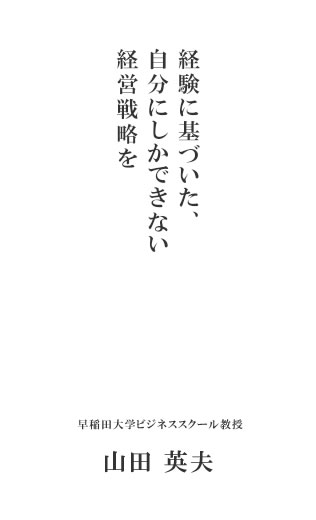 経験に基づいた、
自分にしかできない
経営戦略を
早稲田大学ビジネススクール教授
山田 英夫